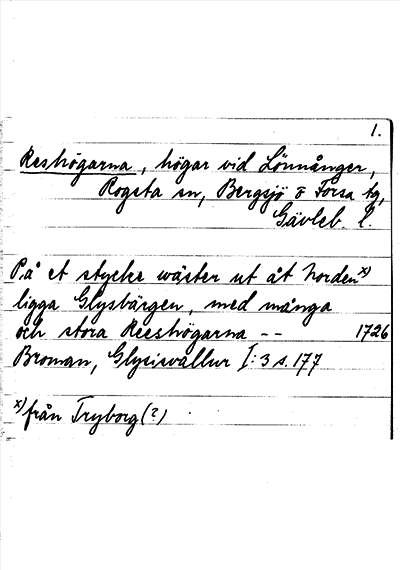 1.
Reshögarna, högar vid Lönnånger,
Rogsta sn, Bergsjö o Forsa tg,
Gävleb. l.
På et stycke wäster ut åt Norden x)
ligga Glysbärgen, med många
och stora Reeshögarna -- 1726
Broman, Glysisvallur I:3 s. 177
x) från Tryborg (?)